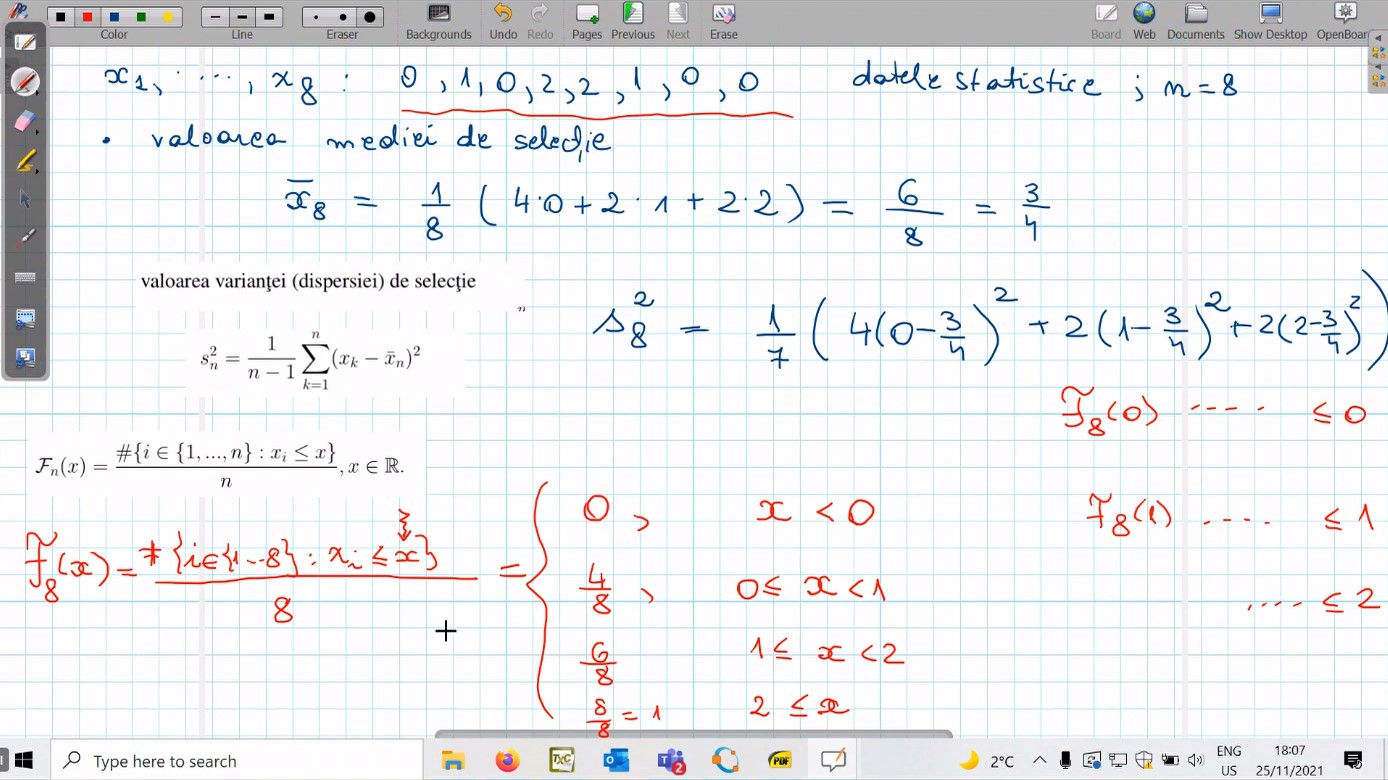 Color Line Eraser Backgrounds Undo Redo Pages Previous Next Erase Board Web Documents Show Desktop OpenBoar
x₁, ⋯, x₈ : 0, 1, 0, 2, 2, 1, 0, 0 datele statistice ; n = 8
• valoarea mediei de selecție
x̄₈ = 1/8 (4·0 + 2·1 + 2·2) = 6/8 = 3/4
valoarea varianţei (dispersiei) de selecţie
s₈² = 1/7 (4(0 − 3/4)² + 2(1 − 3/4)² + 2(2 − 3/4)²)
s_n² = 1/(n − 1) ∑_{k=1}^{n} (x_k − x̄_n)²
F₈(0) ---- ≤ 0
F_n(x) = #{i ∈ {1, ..., n} : x_i ≤ x} / n, x ∈ ℝ.
F₈(1) .... ≤ 1
F₈(x) = #{i ∈ {1...8} : x_i ≤ x} / 8 = {
0, x < 0
4/8, 0 ≤ x < 1
.... ≤ 2
6/8 1 ≤ x < 2
8/8 = 1 2 ≤ x
Type here to search
TXC
2
PDF
2°C
ENG
US
18:07
25/11/2021